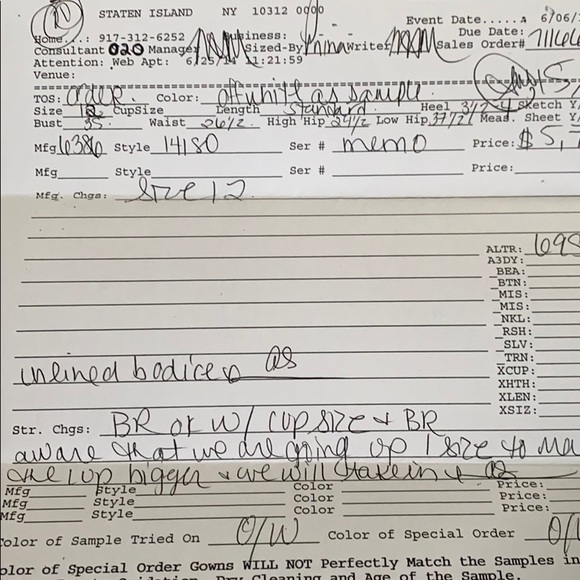 STATEN ISLAND NY 10312 0000
Event Date.....A 6/06/
Home...: 917-312-6252 Business: Due Date:
Consultant 020 Manager Sized-By Nina Writer Sales Order#
Attention: Web Apt: 6/25/ 11:21:59
Venue:
TOS: order Color: off white as sample
Size 12 CupSize Length Standard Heel 3 1/2-4 Sketch Y/
Bust 35 Waist 26 1/2 High Hip Low Hip 37 1/2 Meas. Sheet Y/
Mfg 6386 Style 14180 Ser # memo Price: $5,
Mfg Style Ser # Price:
Mfg. Chgs: Size 12
ALTR: 695
A3DY:
BEA:
BTN:
MIS:
MIS:
NKL:
RSH:
SLV:
TRN:
XCUP:
XHTH:
XLEN:
XSIZ:
unlined bodice as
Str. Chgs: BR ok w/ cup size + BR
aware that we are going up 1 size to ma
the cup bigger + we will take in + as
Mfg Style Color Price:
Mfg Style Color Price:
Mfg Style Color Price:
Color of Sample Tried On O/W Color of Special Order O/
olor of Special Order Gowns WILL NOT Perfectly Match the Samples in
Dry Cleaning and Age of the Sample.